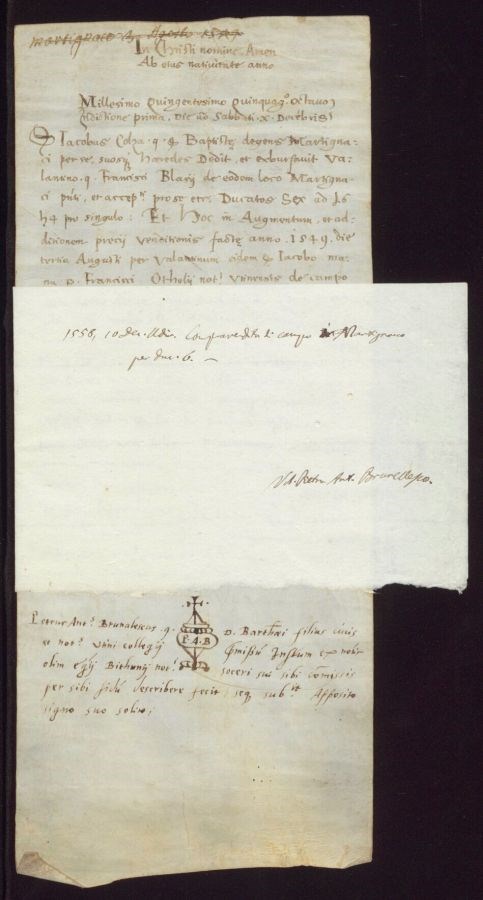 Martignaco 3 Agosto 1549
In Christi nomine Amen
Ab eius nativitate anno
Millesimo Quingentesimo Quinquag.º Octavo
Inditione prima, Die vº Sabbati. X. Decēbris
S Iacobus Colza . q. S Baptistę degens Martigna-
ci per se, suosq; Haeredes Dedit, et exbursavit Va-
lantino . q. Francisci Blasij de eodem loco Martigna-
ci pn̄ti, et accep.ti pro se etc. Ducatos Sex ad L 6
ẞ 4 pro singulo: Et Hoc in Augmentum, et ad-
ditionem precij venditionis factę anno . 1549. die
tertia Augusti per Valantinum eidem S Iacobo ma-
nu p. Francisci Otholij not.i Utinensis de campo
1558, 10 Dec. Udin. Compravendita di campo in Martignaco
per duc. 6.
Nd. Pietro Ant. Brunelesco.
Petrus Ant.s Brunalescus . q.
P. A. B
D. Barthēi filius civis
ac not.s Utini collegij
Instum ex not
olim Bithunij not.i
soceri sui sibi comissis
per sibi fidū describere fecit, seq. sub.sit Apposito
signo suo solito;